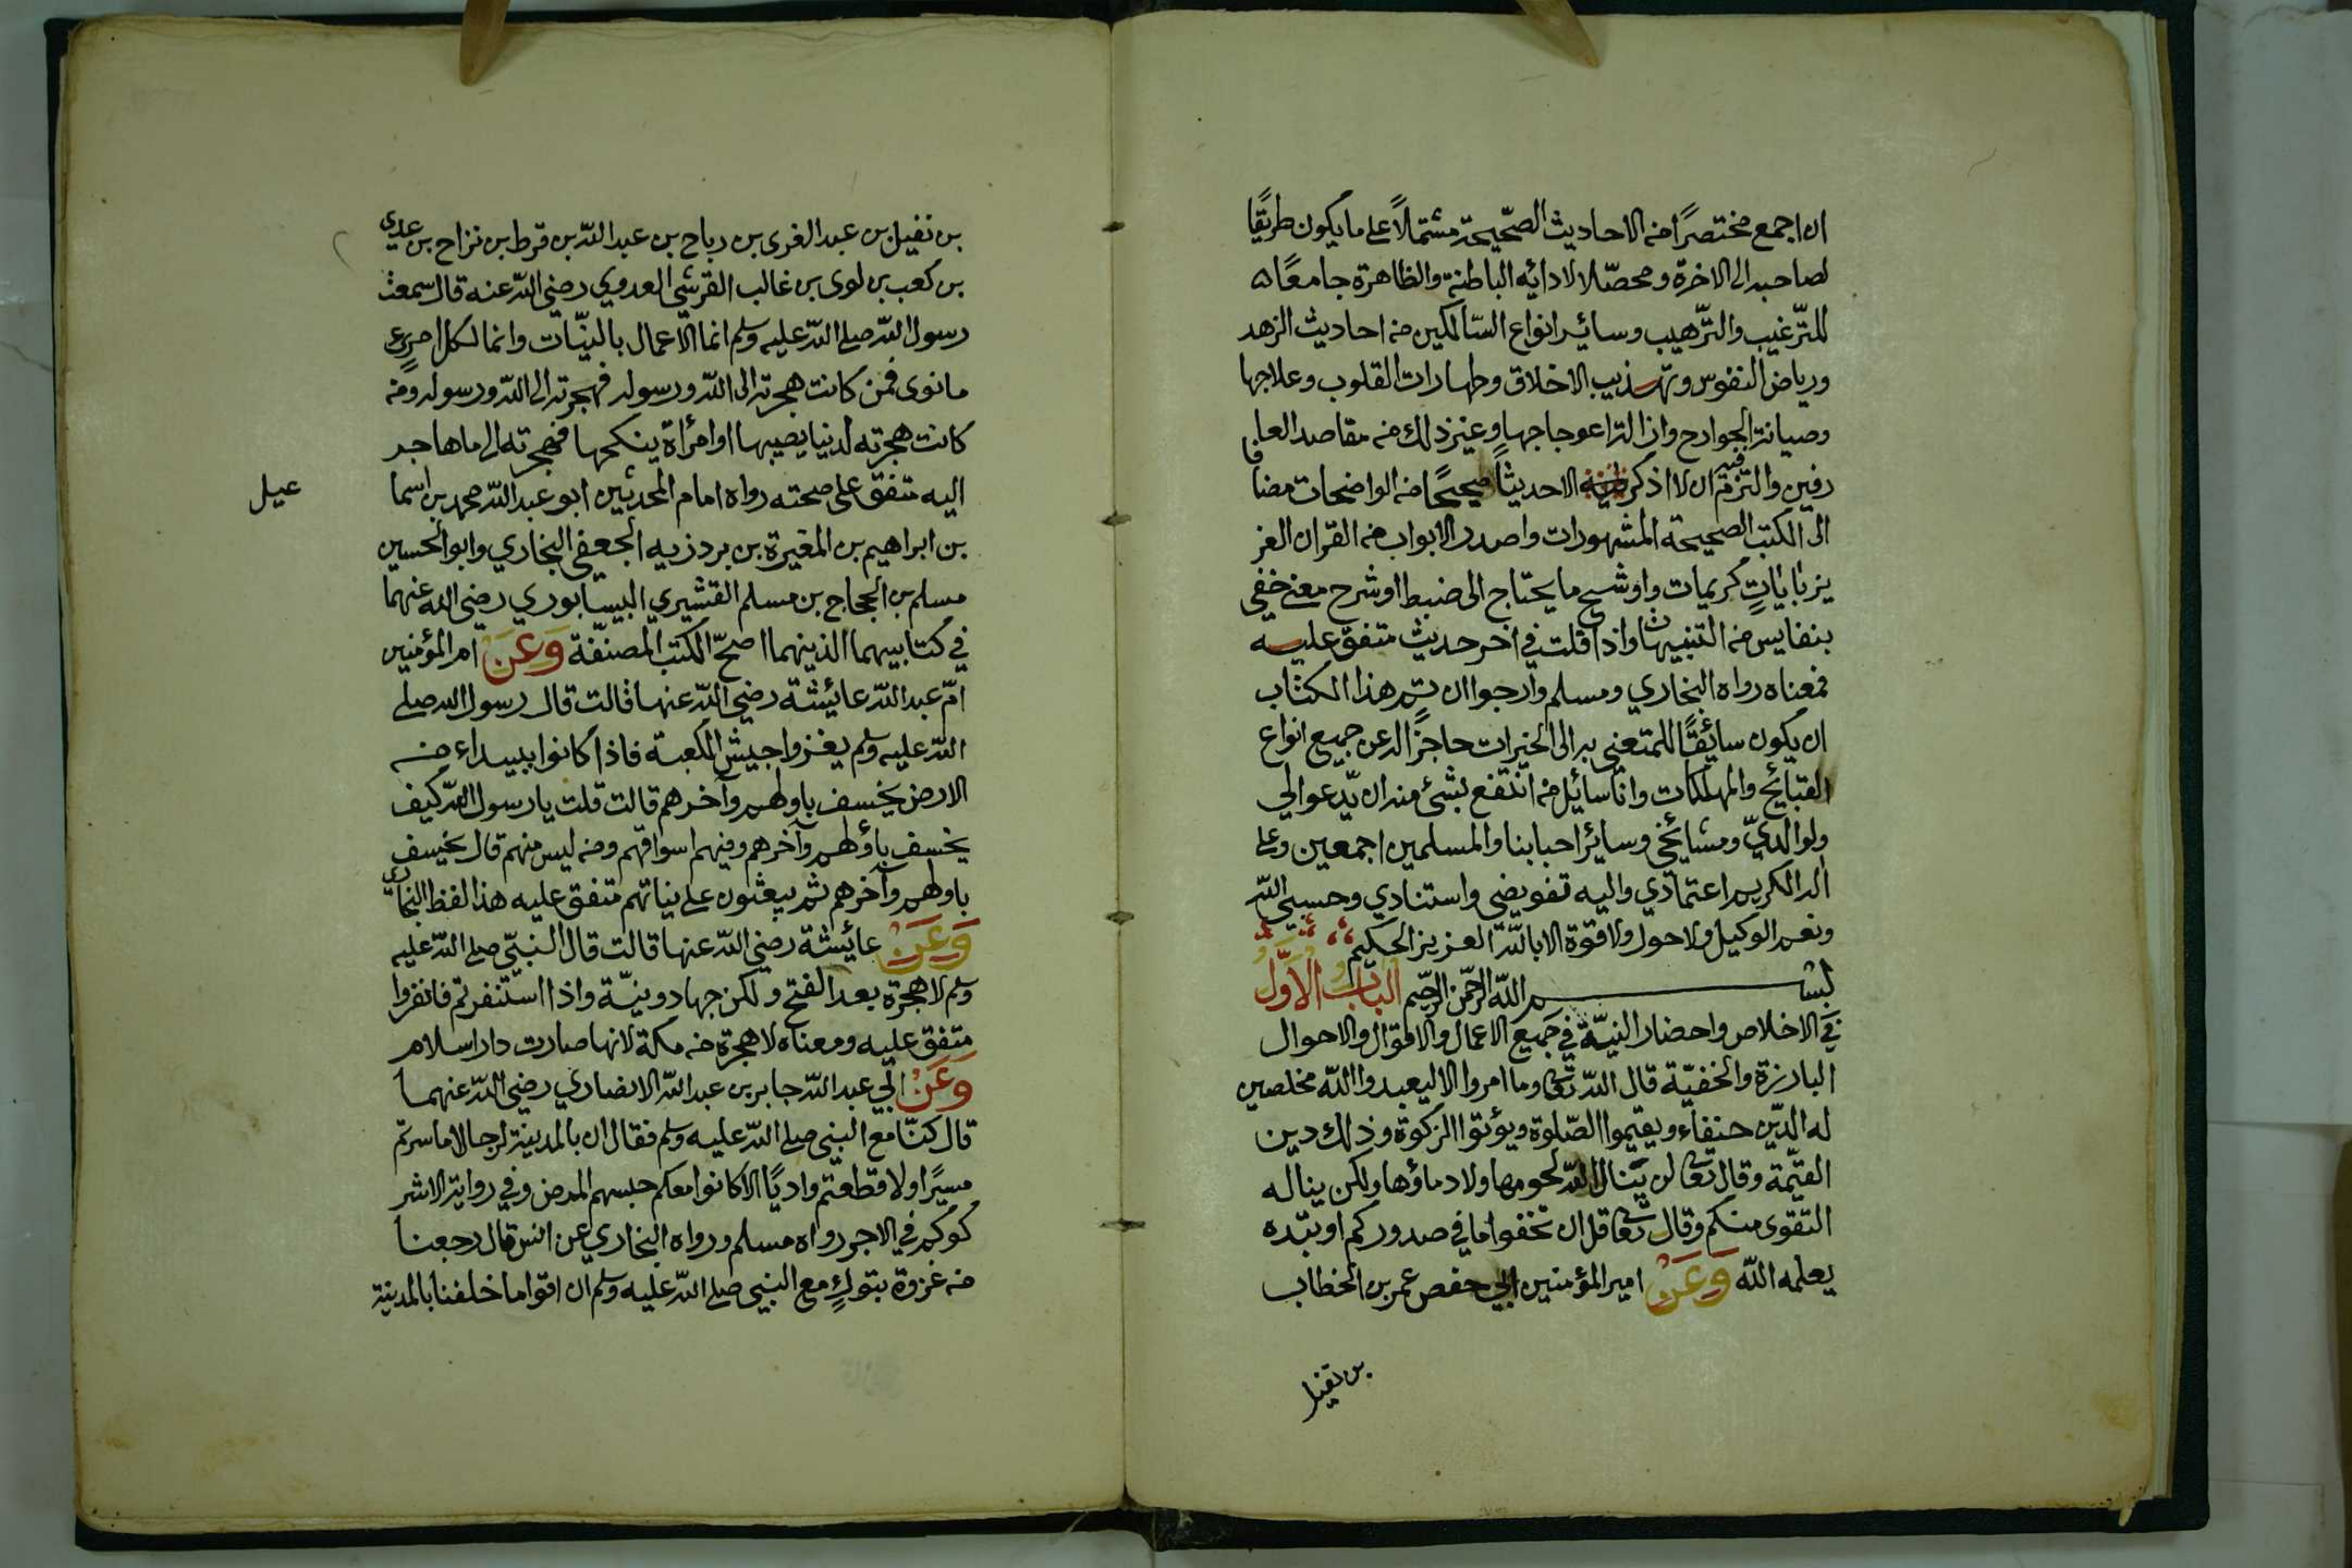 ان اجمع مختصرًا من الاحاديث الصّحيحة مشتملاً على ما يكون طريقًا
لصاحبه الى الاخرة ومحصّلا لادابه الباطنة والظاهرة جامعًا
للتّرغيب والتّرهيب وسائر انواع السّالكين من احاديث الزهد
ورياض النفوس وتهذيب الاخلاق وطهارات القلوب وعلاجها
وصيانة الجوارح وازالة اعوجاجها وغير ذلك من مقاصد العا
رفين والتزم فيه ان لا اذكر الا حديثًا صحيحًا من الواضحات مضافا
الى الكتب الصحيحة المشهورات واصدر الابواب من القران العز
يز بايات كريمات واوشح ما يحتاج الى ضبط او شرح معنى خفى
بنفايس من التنبيهات واذا قلت في اخر حديث متفق عليه
فمعناه رواه البخاري ومسلم وارجوا ان تم هذا الكتاب
ان يكون سائقًا للمتعنى به الى الخيرات حاجزًا له عن جميع انواع
القبائح والمهلكات وانا سائل من انتفع بشئ منه ان يدعوا لي
ولوالديّ ومشائخى وسائر احبابنا والمسلمين اجمعين وعلى
الله الكريم اعتمادي واليه تفويضى واستنادي وحسبى الله
ونعم الوكيل ولا حول ولا قوة الا بالله العزيز الحكيم
بسم الله الرحمن الرحيم الباب الاوّل
في الاخلاص واحضار النيّة في جميع الاعمال والاقوال والاحوال
البارزة والخفيّة قال الله تعالى وما امروا الا ليعبدوا الله مخلصين
له الدّين حنفاء ويقيموا الصّلوة ويؤتوا الزكوة وذلك دين
القيّمة وقال تعالى لن ينال الله لحومها ولا دماؤها ولكن يناله
التقوى منكم وقال تعالى قل ان تخفوا ما في صدوركم او تبدوه
يعلمه الله وَعَنْ امير المؤمنين ابي حفص عمر بن الخطاب
بن نفيل
بن نفيل بن عبد العزى بن رباح بن عبد الله بن قرط بن نزاح بن عدي
بن كعب بن لوى بن غالب القرشي العدوي رضى الله عنه قال سمعت
رسول الله صلى الله عليه وسلم انما الاعمال بالنيّات وانما لكل امرئ
ما نوى فمن كانت هجرته الى الله ورسوله فهجرته الى الله ورسوله ومن
كانت هجرته لدنيا يصيبها او امرأة ينكحها فهجرته الى ما هاجر
اليه متفق على صحته رواه امام المحدثين ابو عبد الله محمد بن اسما
عيل
بن ابراهيم بن المغيرة بن بردزبه الجعفى البخاري وابو الحسين
مسلم بن الحجاج بن مسلم القشيري النيسابوري رضى الله عنهما
في كتابيهما الذينهما اصحّ الكتب المصنّفة وَعَنْ ام المؤمنين
امّ عبد الله عائشة رضى الله عنها قالت قال رسول الله صلى
الله عليه وسلم يغزوا جيش الكعبة فاذا كانوا ببيداء من
الارض يخسف باولهم وآخرهم قالت قلت يا رسول الله كيف
يخسف باولهم وآخرهم وفيهم اسواقهم ومن ليس منهم قال يخسف
باولهم وآخرهم ثم يبعثون على نياتهم متفق عليه هذا لفظ البخاري
وَعَنْ عائشة رضى الله عنها قالت قال النبيّ صلى الله عليه
وسلم لا هجرة بعد الفتح ولكن جهاد ونيّة واذا استنفرتم فانفروا
متفق عليه ومعناه لا هجرة من مكة لانها صارت دار اسلام
وَعَنْ ابي عبد الله جابر بن عبد الله الانصاري رضى الله عنهما
قال كنّا مع النبى صلى الله عليه وسلم فقال ان بالمدينة لرجالا ما سرتم
مسيرًا ولا قطعتم واديًا الا كانوا معكم حبسهم المرض وفي رواية الا شر
كوكم في الاجر رواه مسلم ورواه البخاري عن انس قال رجعنا
من غزوة تبوك مع النبى صلى الله عليه وسلم ان اقواما خلفنا بالمدينة